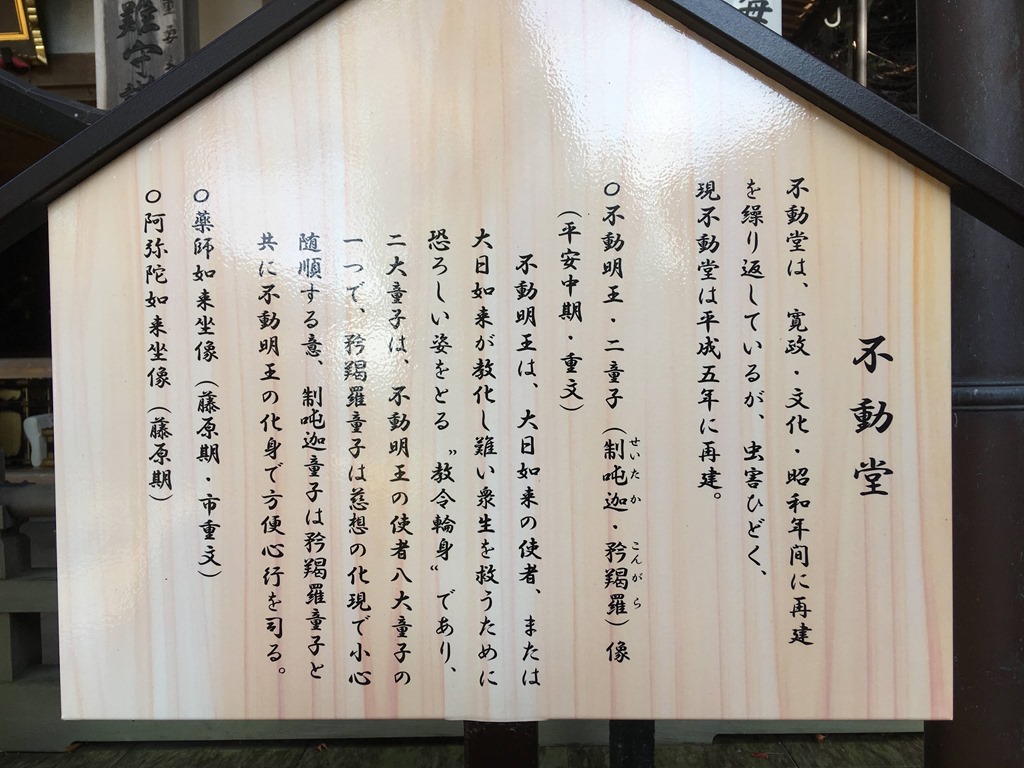 不動堂
不動堂は、寛政・文化・昭和年间に再建
を繰り返しているが、虫害ひどく、
現不動堂は平成五年に再建。
○不動明王・二童子（制吨迦・矜羯羅）像
せいたか こんがら
（平安中期・重文）
不動明王は、大日如来の使者、または
大日如来が教化し難い衆生を救うために
恐ろしい姿をとる〝教令輪身〟であり、
二大童子は、不動明王の使者八大童子の
一つで、矜羯羅童子は慈想の化現で小心
随順する意、制吨迦童子は矜羯羅童子と
共に不動明王の化身で方便心行を司る。
○薬師如来坐像（藤原期・市重文）
○阿弥陀如来坐像（藤原期）
難守